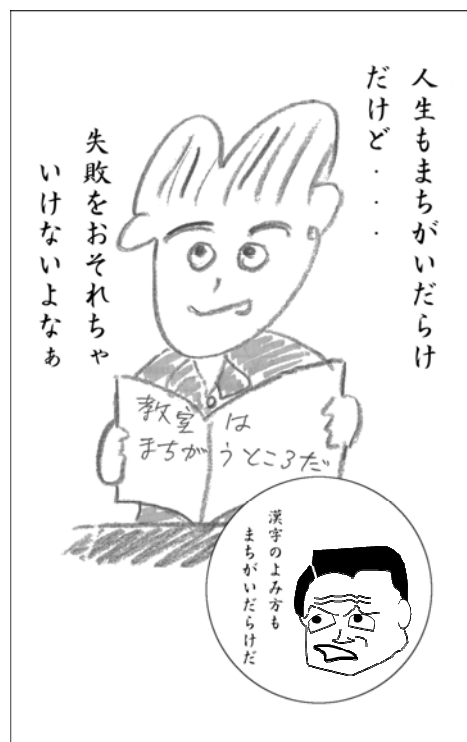 人生もまちがいだらけ
だけど・・・
失敗をおそれちゃ
いけないよなぁ
教室は
まちがうところだ
漢字のよみ方も
まちがいだらけだ